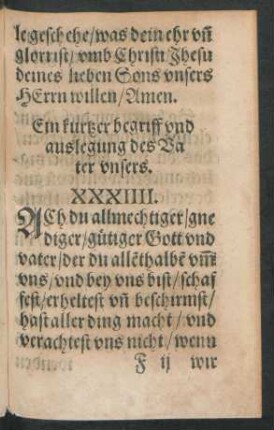 le geschehe/was dein ehr vn̄
glori ist/vmb Christi Jhesu
deines lieben Sons vnsers
HErrn willen/Amen.
Ein kurtzer begriff vnd
auslegung des Va
ter vnsers.
XXXIIII.
ACh du allmechtiger/gne
diger/gütiger Gott vnd
vater/der du allēthalbē vm̄
vns/vnd bey vns bist/schaf
fest/erheltest vn̄ beschirmst/
hast aller ding macht/vnd
verachtest vns nicht/wenn
F ij wir